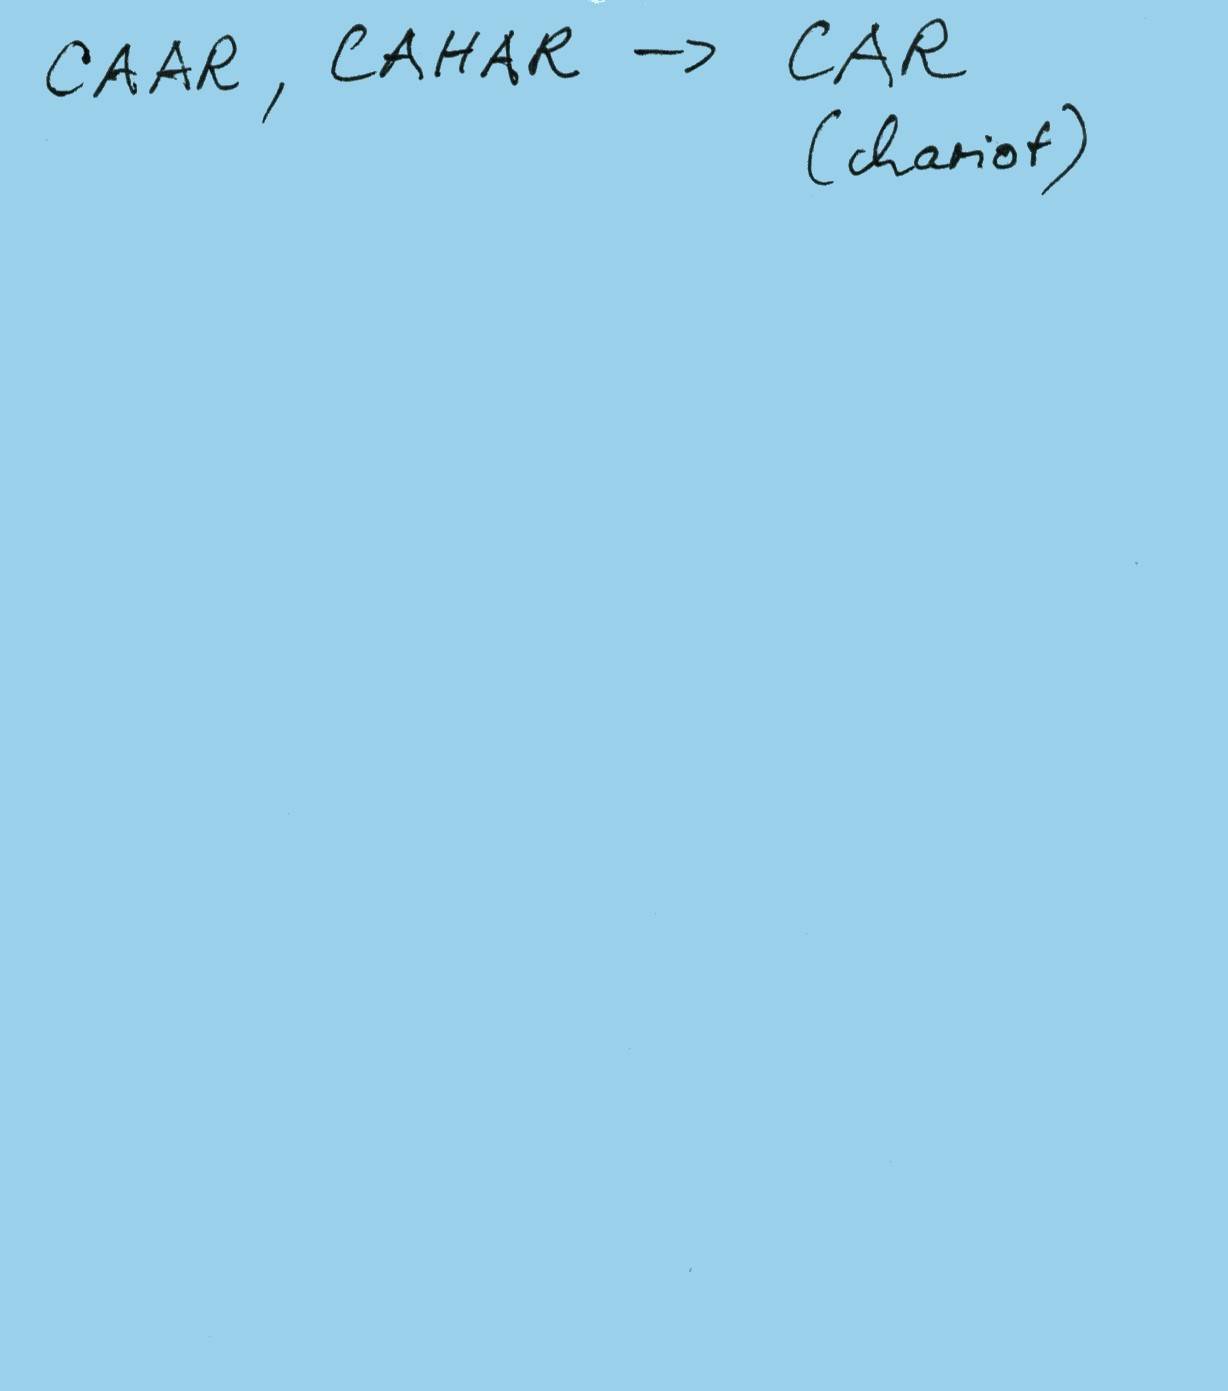 CAAR, CAHAR -> CAR
(chariot)